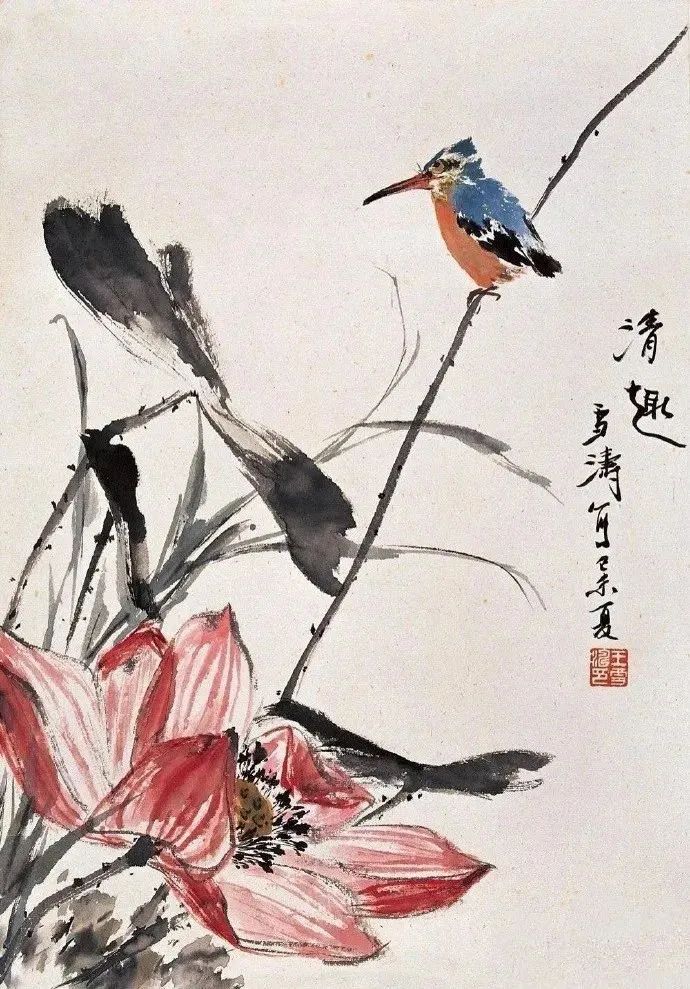 清趣
雪涛写己未夏
王雪涛印